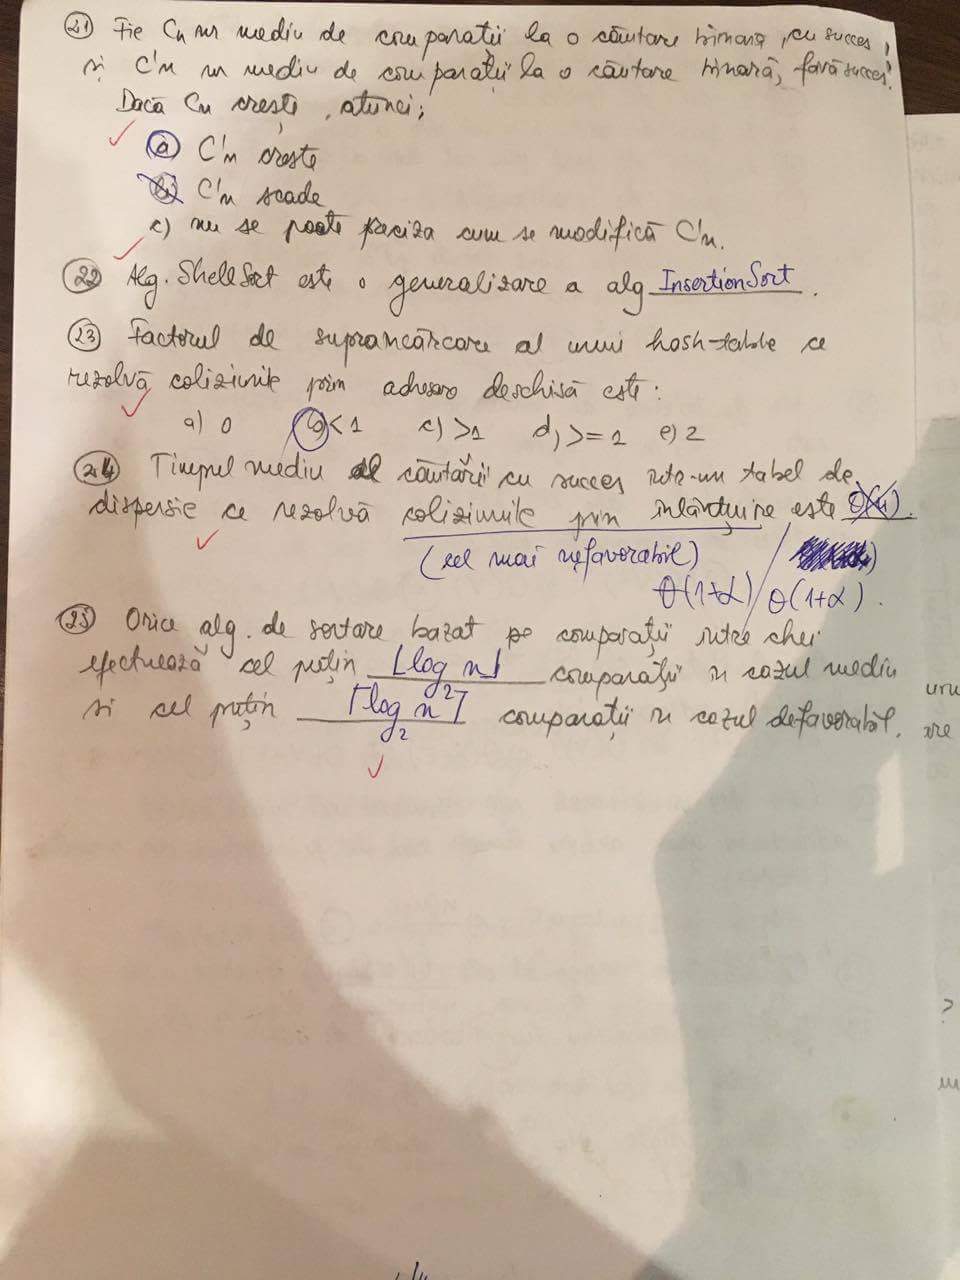 21) Fie Cn nr mediu de comparații la o căutare binară, cu succes,
și C'n nr mediu de comparații la o căutare binară, fără succes.
Dacă Cn crește, atunci:
a) C'n crește
b) C'n scade
c) nu se poate preciza cum se modifică C'n.
22) Alg. ShellSort este o generalizare a alg InsertionSort.
23) Factorul de suprancărcare al unui hash-table ce
rezolvă coliziunile prin adresare deschisă este:
a) 0 b) < 1 c) >1 d) >= 1 e) 2
24) Timpul mediu al căutării cu succes într-un tabel de
dispersie ce rezolvă coliziunile prin înlănțuire este
(cel mai nefavorabil)
θ(1+α) / θ(1+α).
25) Orice alg. de sortare bazat pe comparații între chei
efectuează cel puțin ⌊log n⌋ comparații în cazul mediu
și cel puțin ⌈log₂ n⌉ comparații în cazul defavorabil.
uru
are
?
m